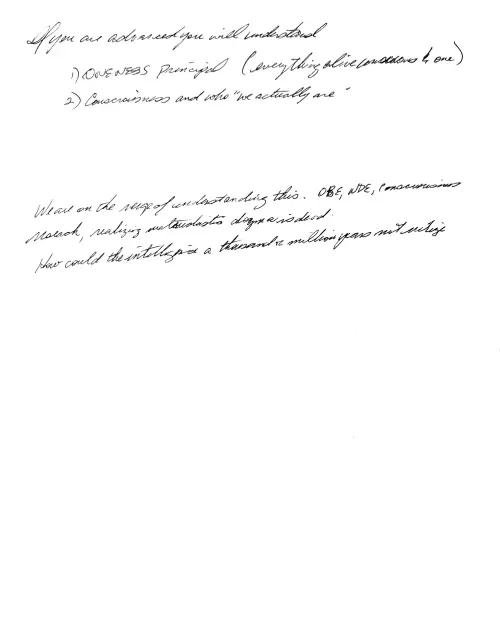 If you are advanced you will understand
1) ONENESS principal (everything alive conscious & one)
2) Consciousness and who "we actually are"
We are on the verge of understanding this. OBE, NDE, Consciousness
research, realizing materialistic dogma is dead.
How could the intelligence a thousand or million years not utilize